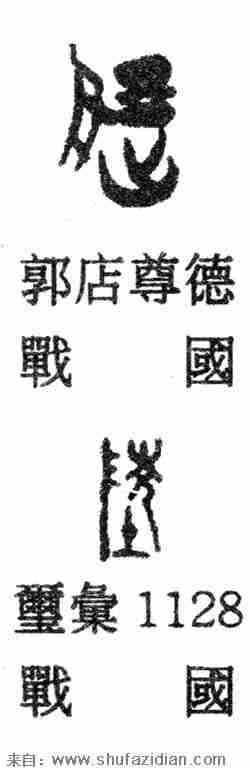 郭店尊德
戰國
璽彙1128
戰國
来自：www.shufazidian.com